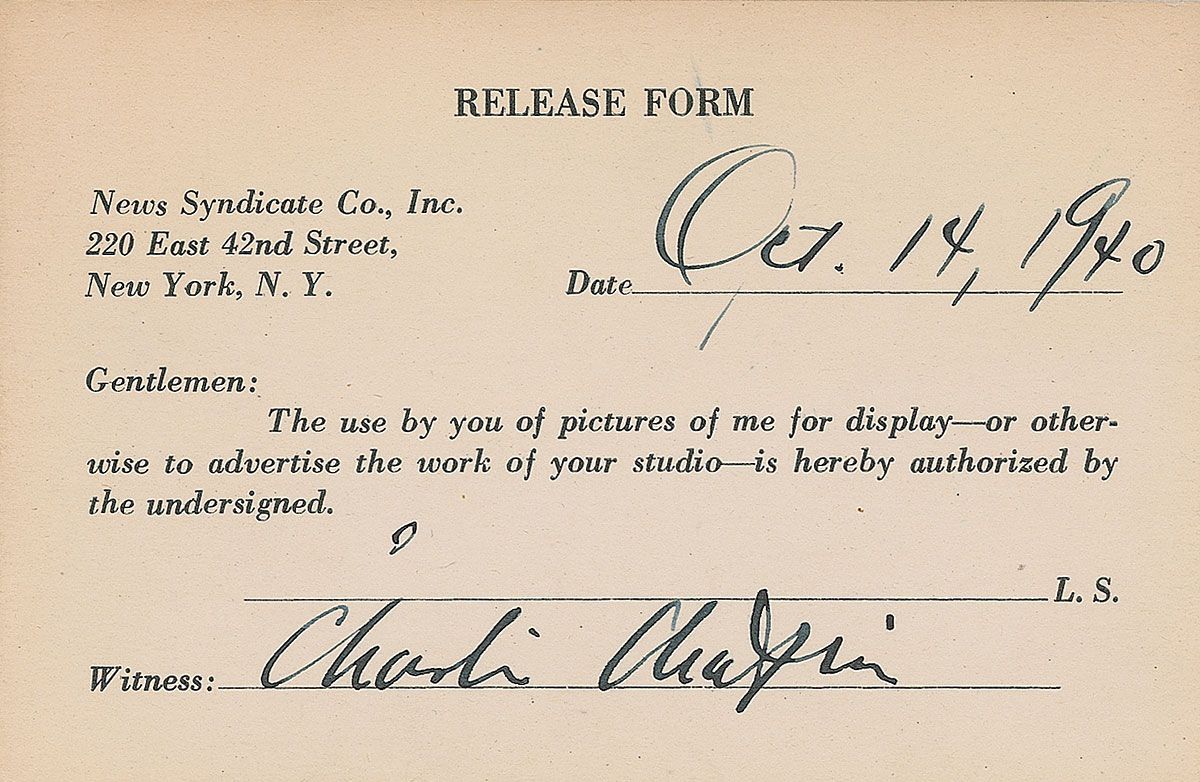 RELEASE FORM
News Syndicate Co., Inc.
220 East 42nd Street,
New York, N. Y.
Date Oct. 14, 1940
Gentlemen:
The use by you of pictures of me for display—or other-
wise to advertise the work of your studio—is hereby authorized by
the undersigned.
L. S.
Witness: Charlie Chaplin